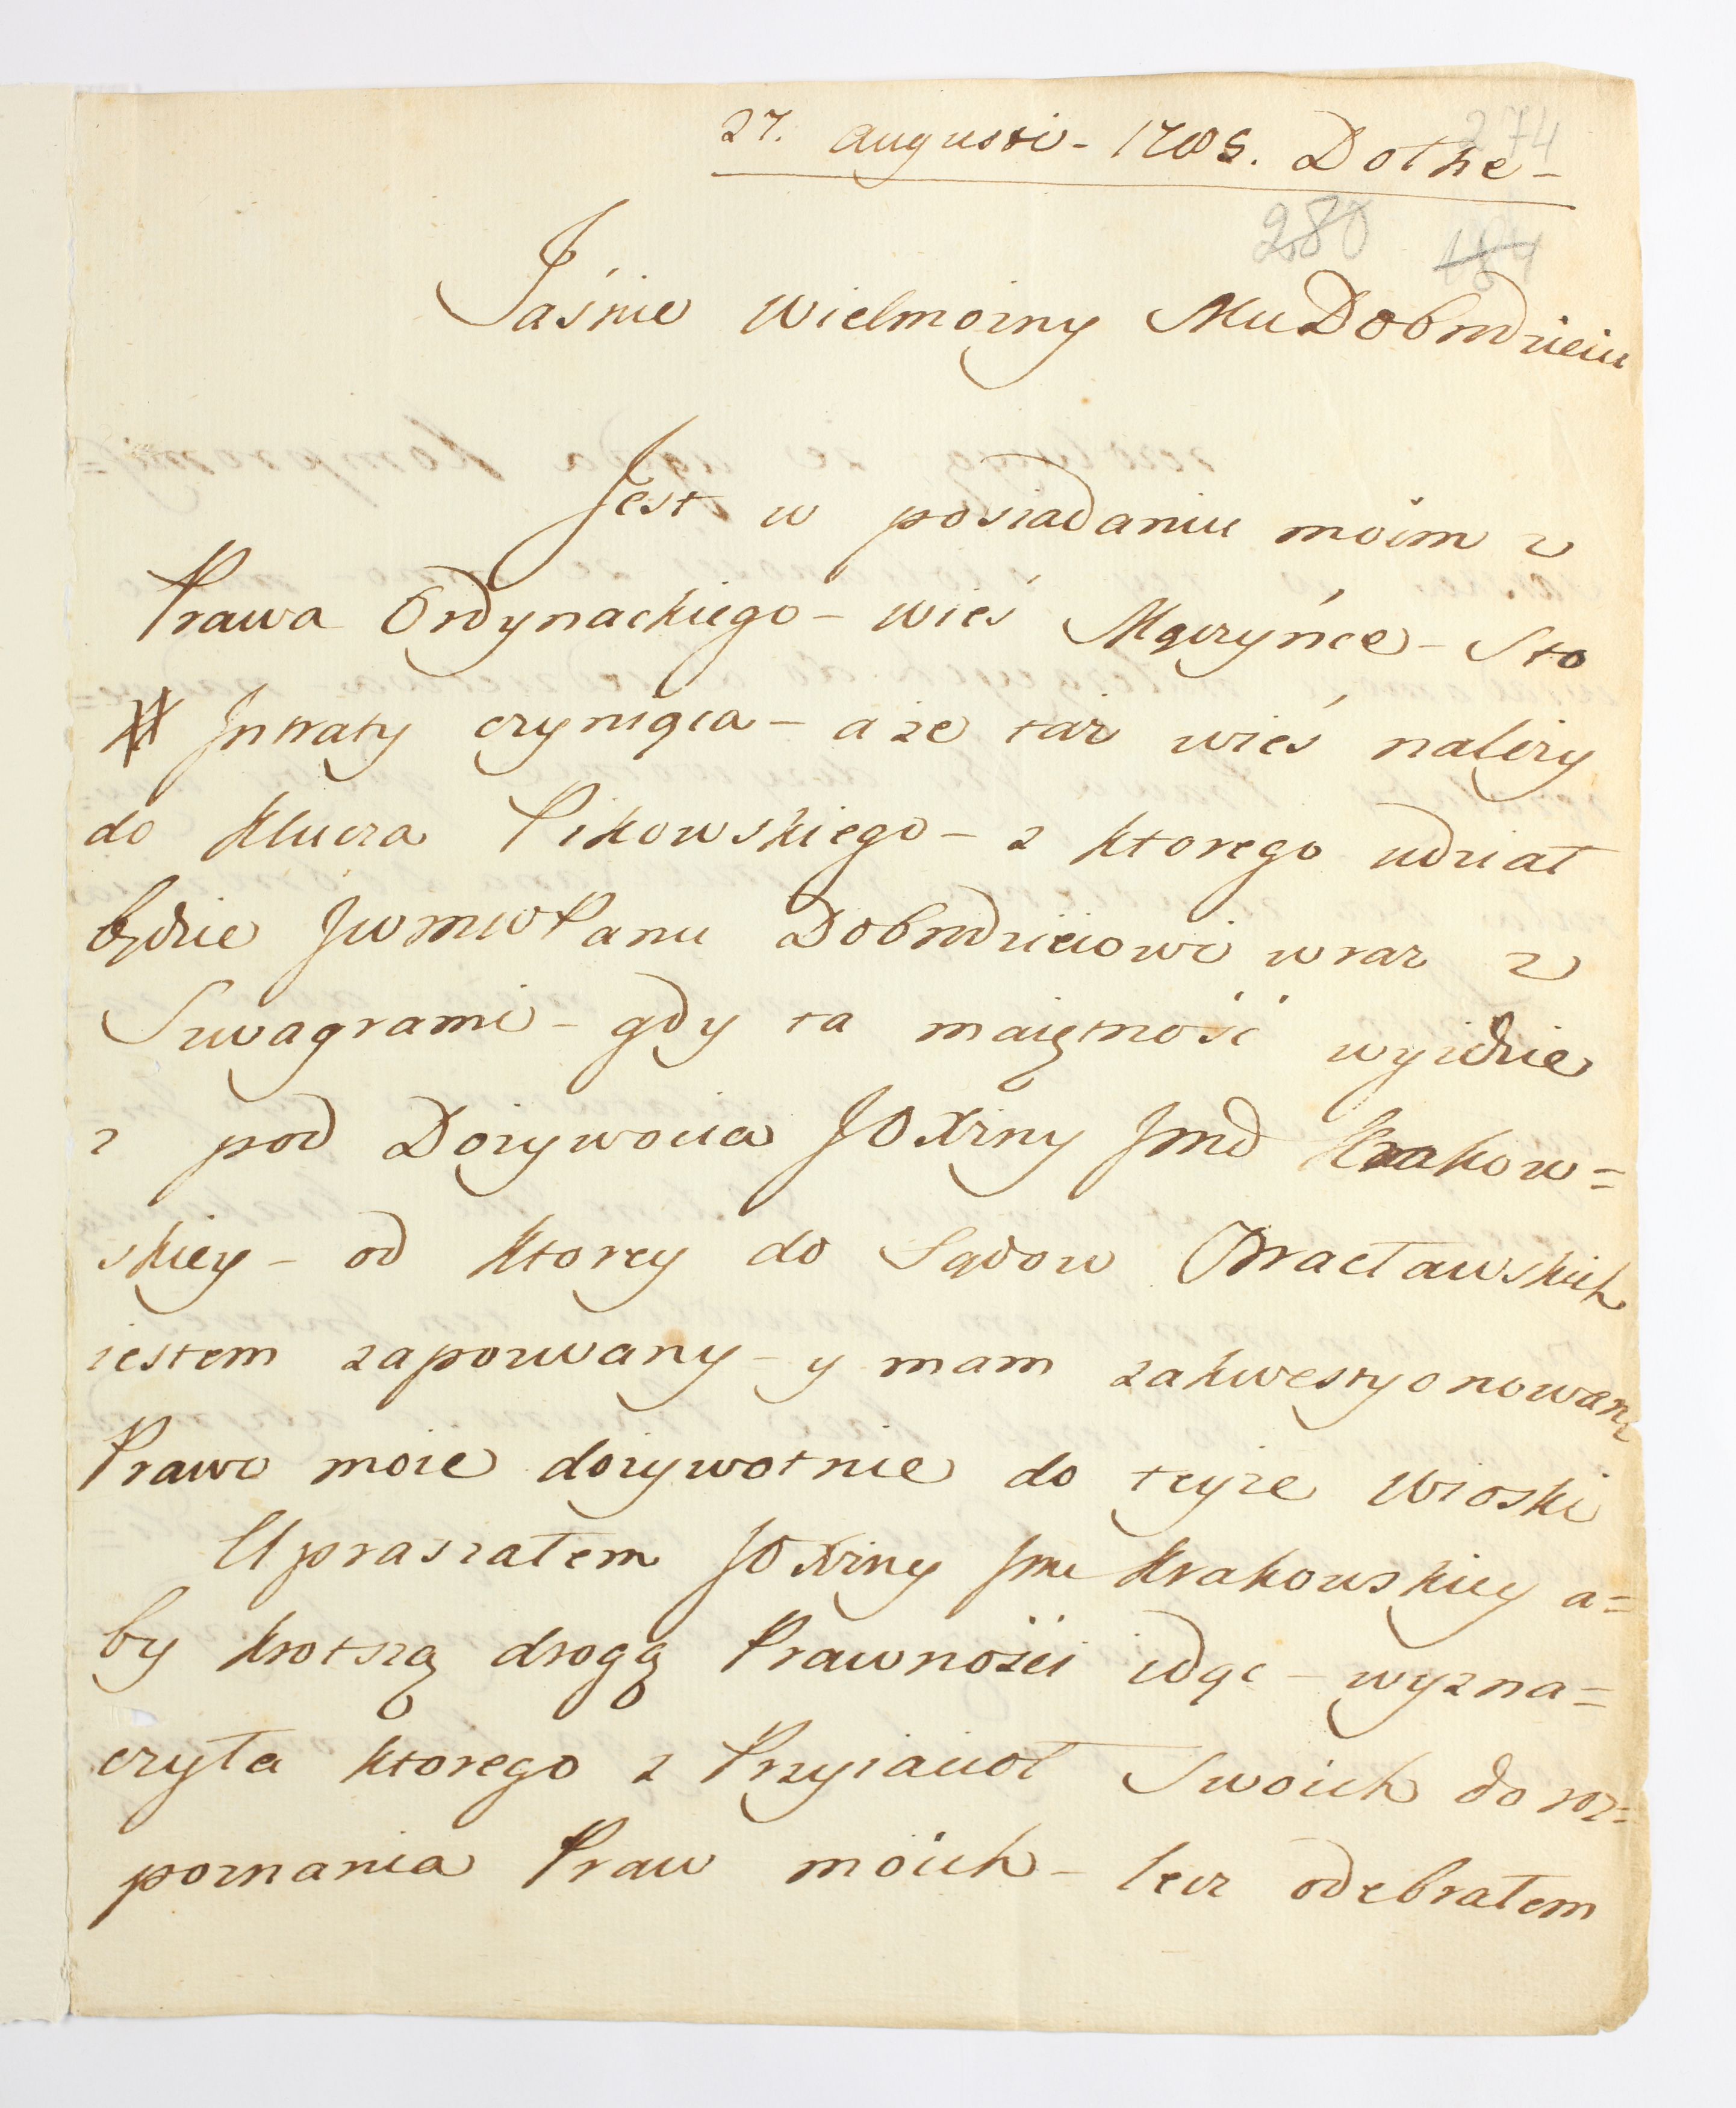 27. Augusti - 1785. Dothe -
274
280 184
Jaśnie Wielmożny Mu Dobrodzieiu
Jest w posiadaniu moim z
Prawa Ordynackiego - wieś Mączyńce - Sto
# Jntraty czyniąca - a że taż wieś należy
do Klucza Pikowskiego - z ktorego udział
będzie JWMWPanu Dobrodzieiowi wraz z
Szwagrami - gdy ta maiętność wyidzie
z pod Dożywocia JOXżny Jmć Krakow=
skiey - od Ktorey do Sądow Bracławskich
iestem zapozwany - y mam zakwestyonowane
Prawo moie dożywotnie do teyże Wioski
Upraszałem JOXżny Jmci Krakowskiey a=
by krotszą drogą Prawności idąc - wyzna=
czyła ktorego z Przyiacioł Swoich do roz=
poznania Praw moich - lecz odebrałem